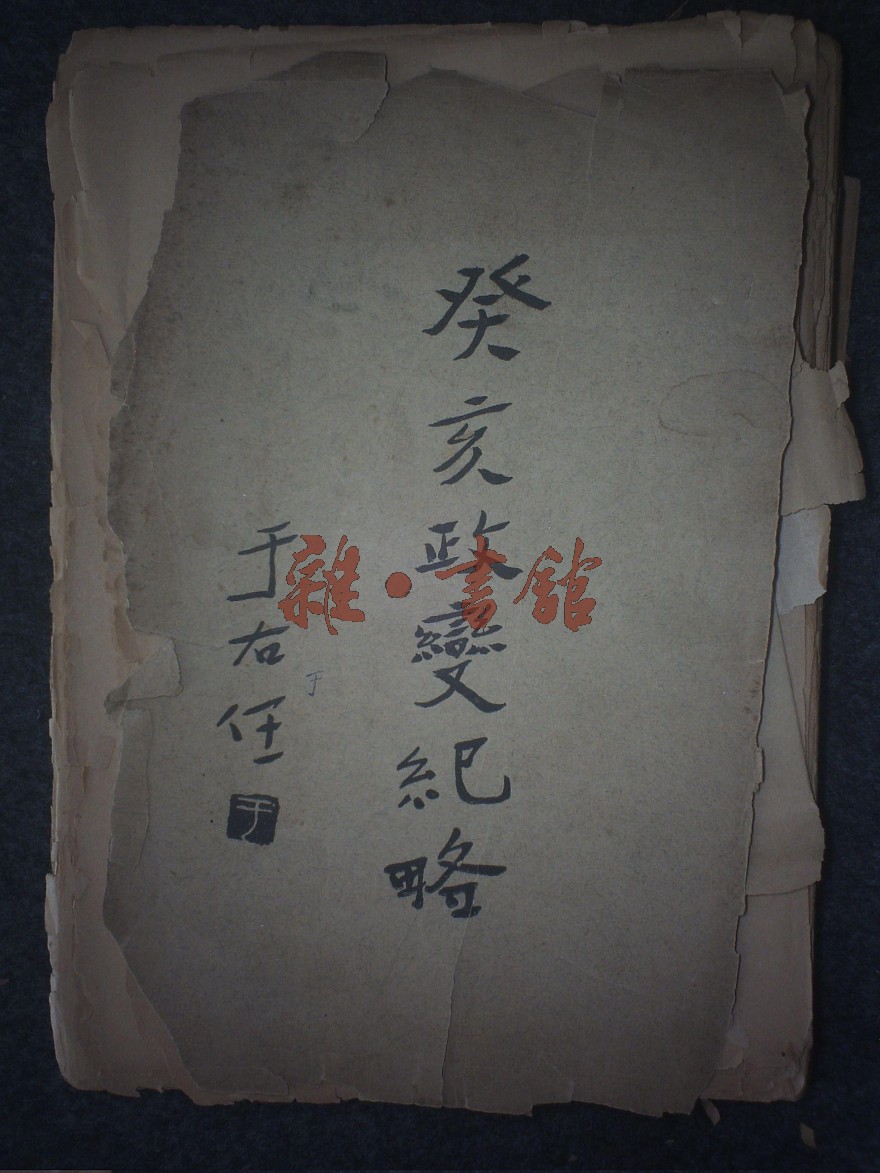 癸亥政變紀略
于右任
于
于
雜·書館